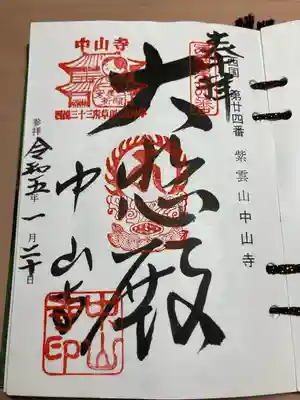 紫雲山中山寺
西国 第廿四番
奉拝
大悲殿
中山寺
中山寺
中山寺印
参拝
令和五年一月二十日